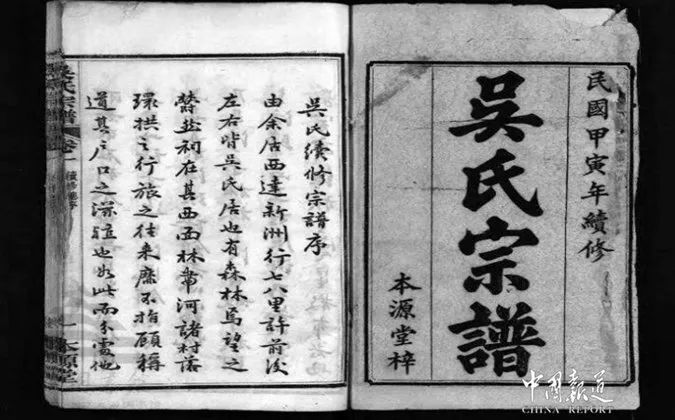 民國甲寅年續修
吳氏宗譜
本源堂梓
吳氏續修宗譜序
由余居西達新洲行七八里許前後
左右皆吳氏居也有森林焉望之
蔚然祠在其西西林帶河諸村落
環拱之行旅之往來靡不指顧稱
道其戶口之深殖也如此而分處他
吳氏宗譜
卷一
本源堂
中國報道
CHINA REPORT